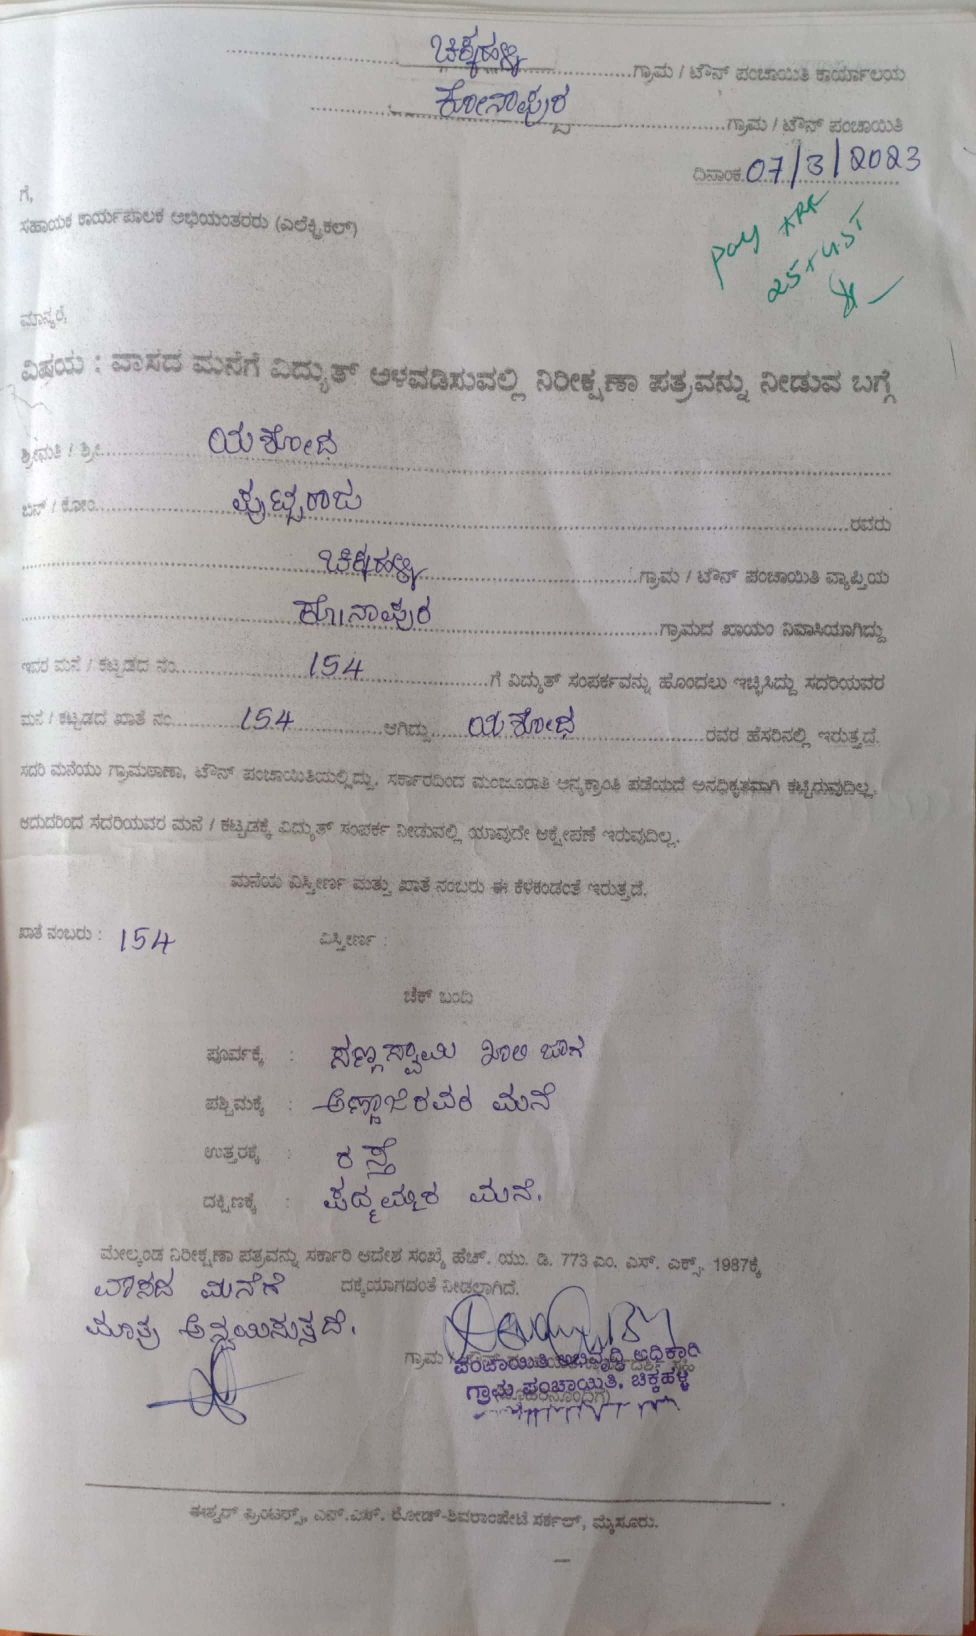 ಚಿಕ್ಕಹಳ್ಳಿ ಗ್ರಾಮ / ಟೌನ್ ಪಂಚಾಯಿತಿ ಕಾರ್ಯಾಲಯ
ಕೋನಾಪುರ ಗ್ರಾಮ / ಟೌನ್ ಪಂಚಾಯಿತಿ
ದಿನಾಂಕ 07/3/2023
ಗೆ,
ಸಹಾಯಕ ಕಾರ್ಯಪಾಲಕ ಅಭಿಯಂತರರು (ಎಲೆಕ್ಟ್ರಿಕಲ್)
pay
ಮಾನ್ಯರೆ,
ವಿಷಯ : ವಾಸದ ಮನೆಗೆ ವಿದ್ಯುತ್ ಅಳವಡಿಸುವಲ್ಲಿ ನಿರೀಕ್ಷಣಾ ಪತ್ರವನ್ನು ನೀಡುವ ಬಗ್ಗೆ
ಶ್ರೀಮತಿ / ಶ್ರೀ ಯಶೋಧ
ಬಿನ್ / ಕೋಂ ಪುಟ್ಟರಾಜು ರವರು
ಚಿಕ್ಕಹಳ್ಳಿ ಗ್ರಾಮ / ಟೌನ್ ಪಂಚಾಯಿತಿ ವ್ಯಾಪ್ತಿಯ
ಕೋನಾಪುರ ಗ್ರಾಮದ ಖಾಯಂ ನಿವಾಸಿಯಾಗಿದ್ದು
ಇವರ ಮನೆ / ಕಟ್ಟಡದ ನಂ. 154 ಗೆ ವಿದ್ಯುತ್ ಸಂಪರ್ಕವನ್ನು ಹೊಂದಲು ಇಚ್ಛಿಸಿದ್ದು ಸದರಿಯವರ
ಮನೆ / ಕಟ್ಟಡದ ಖಾತೆ ನಂ. 154 ಆಗಿದ್ದು ಯಶೋಧ ರವರ ಹೆಸರಿನಲ್ಲಿ ಇರುತ್ತದೆ.
ಸದರಿ ಮನೆಯು ಗ್ರಾಮಠಾಣಾ, ಟೌನ್ ಪಂಚಾಯಿತಿಯಲ್ಲಿದ್ದು, ಸರ್ಕಾರದಿಂದ ಮಂಜೂರಾತಿ ಅನ್ಯಕ್ರಾಂತಿ ಪಡೆಯದೆ ಅನಧಿಕೃತವಾಗಿ ಕಟ್ಟಿರುವುದಿಲ್ಲ.
ಆದುದರಿಂದ ಸದರಿಯವರ ಮನೆ / ಕಟ್ಟಡಕ್ಕೆ ವಿದ್ಯುತ್ ಸಂಪರ್ಕ ನೀಡುವಲ್ಲಿ ಯಾವುದೇ ಆಕ್ಷೇಪಣೆ ಇರುವುದಿಲ್ಲ.
ಮನೆಯ ವಿಸ್ತೀರ್ಣ ಮತ್ತು ಖಾತೆ ನಂಬರು ಈ ಕೆಳಕಂಡಂತೆ ಇರುತ್ತದೆ.
ಖಾತೆ ನಂಬರು : 154 ವಿಸ್ತೀರ್ಣ :
ಚೆಕ್ ಬಂದಿ
ಪೂರ್ವಕ್ಕೆ : ಸಣ್ಣಸ್ವಾಮಿ ಖಾಲಿ ಜಾಗ
ಪಶ್ಚಿಮಕ್ಕೆ : ಅಣ್ಣಾಜಿರವರ ಮನೆ
ಉತ್ತರಕ್ಕೆ : ರಸ್ತೆ
ದಕ್ಷಿಣಕ್ಕೆ : ಪದ್ಮಮ್ಮರ ಮನೆ.
ಮೇಲ್ಕಂಡ ನಿರೀಕ್ಷಣಾ ಪತ್ರವನ್ನು ಸರ್ಕಾರಿ ಆದೇಶ ಸಂಖ್ಯೆ ಹೆಚ್. ಯು. ಡಿ. 773 ಎಂ. ಎಸ್. ಎಕ್ಸ್. 1987ಕ್ಕೆ
ದಕ್ಕೆಯಾಗದಂತೆ ನೀಡಲಾಗಿದೆ.
ವಾಸದ ಮನೆಗೆ
ಮಾತ್ರ ಅನ್ವಯಿಸುತ್ತದೆ.
ಪಂಚಾಯಿತಿ ಅಭಿವೃದ್ಧಿ ಅಧಿಕಾರಿ
ಗ್ರಾಮ ಪಂಚಾಯಿತಿ, ಚಿಕ್ಕಹಳ್ಳಿ
ಈಶ್ವರ್ ಪ್ರಿಂಟರ್ಸ್, ಎನ್.ಎಸ್. ರೋಡ್-ಶಿವರಾಂಪೇಟೆ ಸರ್ಕಲ್, ಮೈಸೂರು.